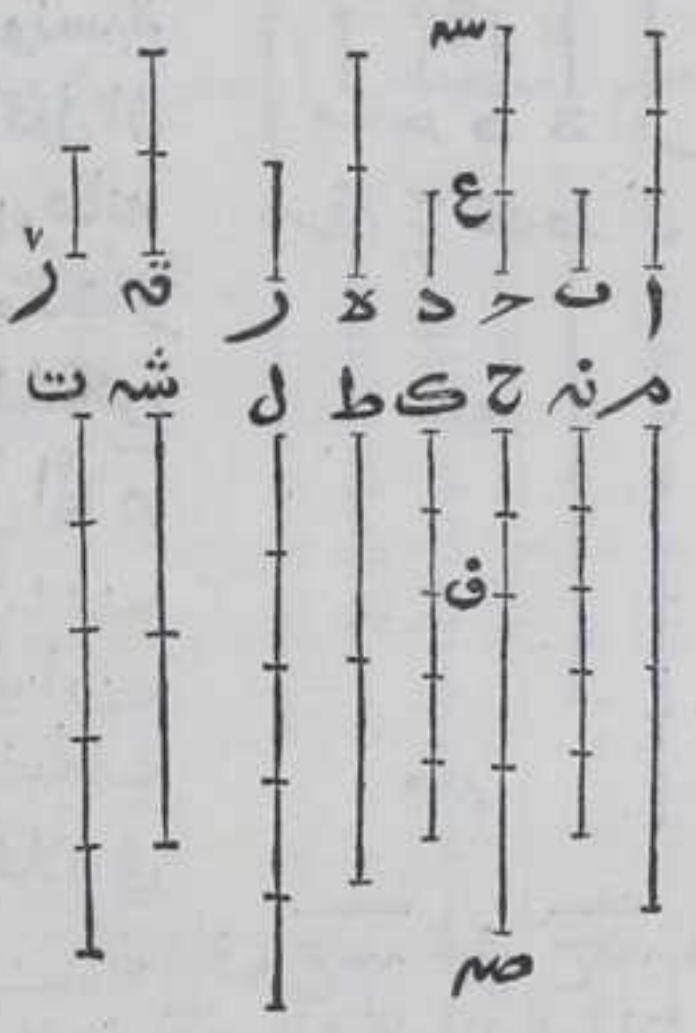 س
ع
ا ب ج د ه ز ق ر
م ن ح ك ط ل ش ت
ف
ص